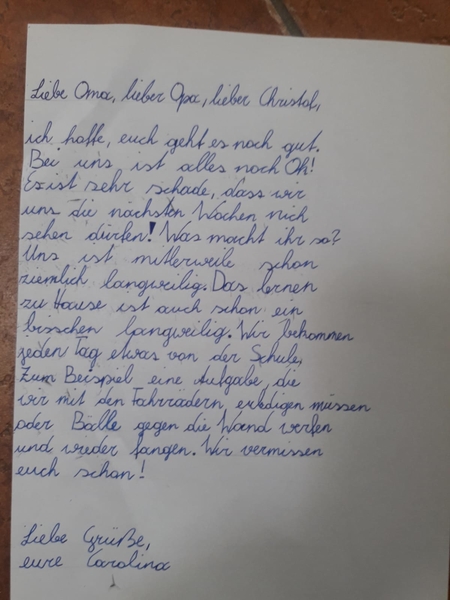 Liebe Oma, lieber Opa, lieber Christof,
ich hoffe, euch geht es noch gut.
Bei uns ist alles noch Ok!
Es ist sehr schade, dass wir
uns die nächsten Wochen nich
sehen dürfen! Was macht ihr so?
Uns ist mitlerweile schon
ziemlich langweilig. Das lernen
zu Hause ist auch schon ein
bisschen langweilig. Wir bekommen
jeden Tag etwas von der Schule,
zum Beispiel eine Aufgabe, die
wir mit den Fahrrädern erledigen müssen
oder Bälle gegen die Wand werfen
und wieder fangen. Wir vermissen
euch schon!
Liebe Grüße,
eure Carolina